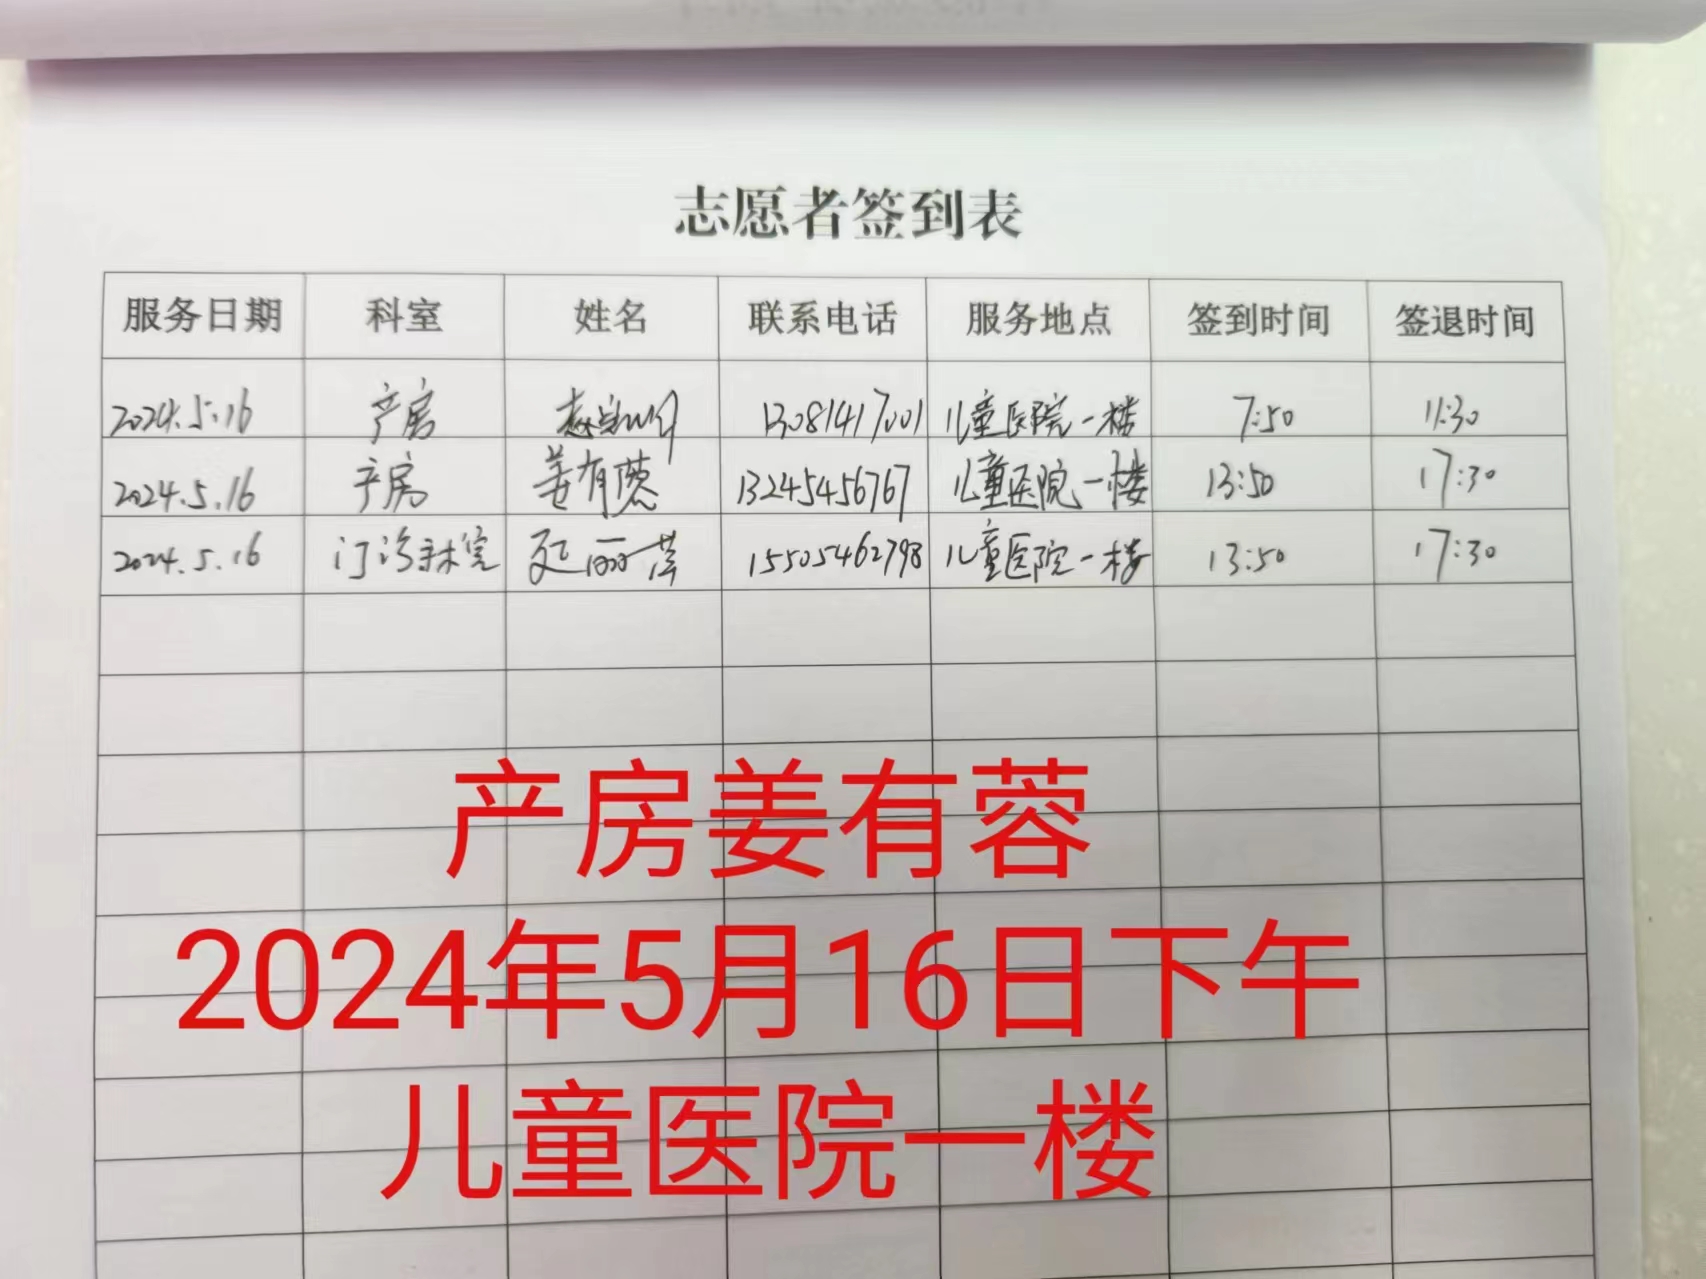 志愿者签到表
服务日期 科室 姓名 联系电话 服务地点 签到时间 签退时间
2024.5.16 产房 13081417001 儿童医院一楼 7:50 11:30
2024.5.16 产房 姜有蓉 13245456767 儿童医院一楼 13:50 17:30
2024.5.16 门诊手术室 丽萍 15505462798 儿童医院一楼 13:50 17:30
产房姜有蓉
2024年5月16日下午
儿童医院一楼